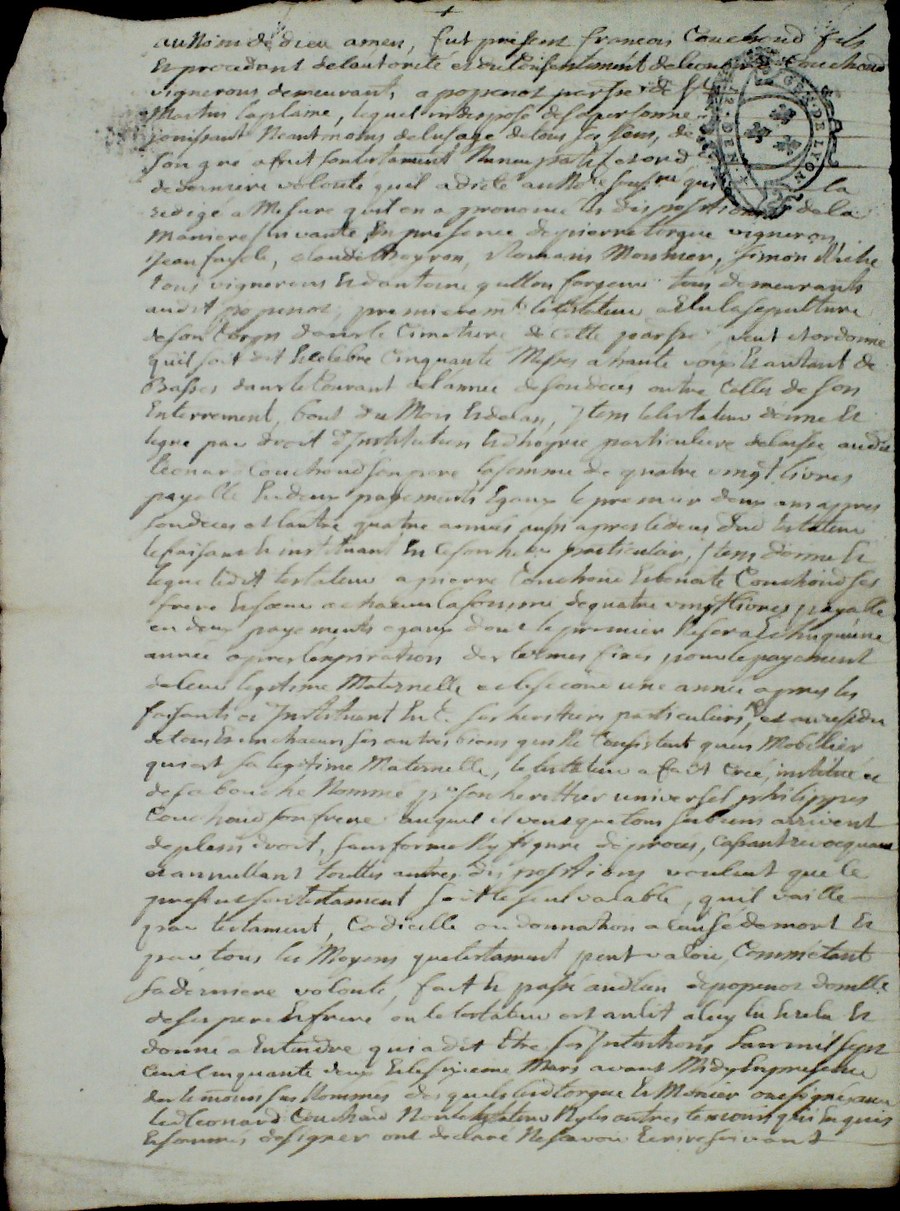 au Nom de dieu amen, fut present francois Couchoud fils
Et procedant de lautorité et du Consentement de Leonard Couchoud
vignerons demeurant, a popenot parsse de St
Martin laplaine, lequel indisposé de sa personne
jouissant Neantmoins de lusage de tous ses sens, de
son gre a fait son testament Nuncupatif et ord
de derniere volonté quil a dicté au Nore soussne qui la
redigé a Mesure quil en a prononcé les dispositions de la
Maniere suivante En presence de pierre torgue vigneron,
Jean fayole, claude Peyron, Romain Monnier, Simon
tous vignerons Et dantoine quillon forgeur tous demeurants
audit popenot, premierement le testateur a Elu la sepulture
de son Corps dans le Cimetiere de cette parsse veut et ordonne
quil soit dit Et celebré Cinquante Messes a haute voix Et autant de
Basses dans le Courant de lannée de son deces outre Celles de son
Enterrement, bout du Mois Et de lan, Item le testateur donne Et
legue par droit d'Institution Et dhoyrie particuliere delaisse audit
leonard Couchoud son pere la somme de quatre vingt livres
payable En deux payements Egaux le premier deux ans apres
son deces et lautre quatre années aussi apres le deces dud testateur
le faisant Et instituant En ce son heritier particulier, Item donne Et
legue ledit testateur a pierre Couchoud Et benoite Couchoud ses
frere Et soeur a chacun la somme de quatre vingt livres payable
en deux payements egaux dont le premier se fera la Cinquieme
année apres lexpiration des termes fixés pour le payement
de leur legitime Maternelle et le second une année apres les
faisants et Instituant En C. ses heritiers particuliers, et au residu
de tous Et un chacuns ses autres biens qui Ne Consistent quen Mobillier
qui est sa legitime Maternelle, le testateur a fait Créé, institué et
de sa bouche Nommé pr son herittier universel philippes
Couchoud son frere auquel il veut que tous ses biens arrivent
de plein droit, sans forme Ny figure de proces, Cassant revocquant
et annullant touttes autres dispositions voulant que le
present son testament soit le seul valable, quil vaille
par testament, Codicille ou donnation a cause de mort Et
par tous les Moyens que testament peut valoir, Commétant
sa derniere volonté, fait Et passé audlieu de popenot domille
de ses pere Et frere ou le testateur est au lit a luy lu Et relu Et
donné a Entendre qui a dit Etre ses Intentions Lan mil sept
Cent Cinquante deux Et le sixieme Mars avant Midy En presence
des temoins sus Nommés desquels led torgue Et Monier ont signé avec
led Leonard Couchoud Non le testateur Ny les autres temoins qui Enquis
Et sommés de signer ont declaré Ne scavoir Ecrire suivant
GEN. DE LYON